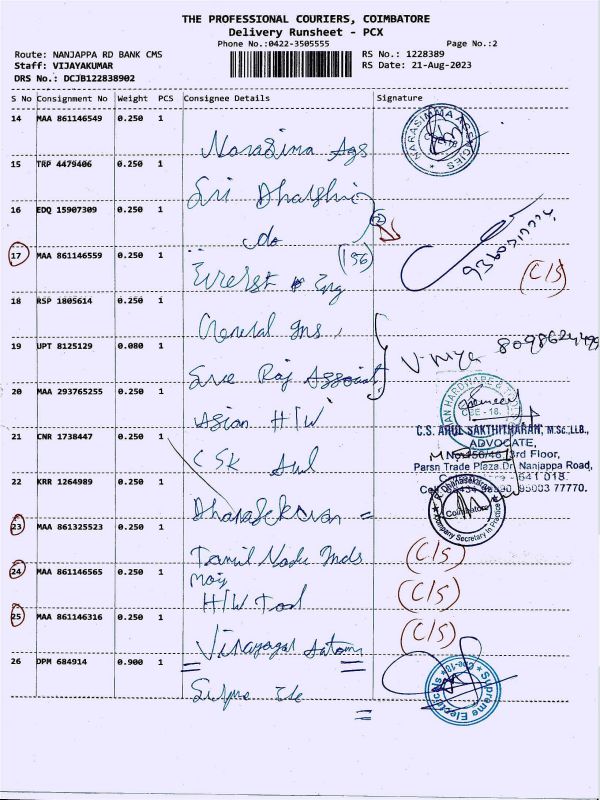 THE PROFESSIONAL COURIERS, COIMBATORE
Delivery Runsheet - PCX
Phone No.:0422-3505555 Page No.:2
Route: NANJAPPA RD BANK CMS RS No.: 1228389
Staff: VIJAYAKUMAR RS Date: 21-Aug-2023
DRS No.: DCJB122838902
S No Consignment No Weight PCS Consignee Details Signature
14 MAA 861146549 0.250 1
Narasima Ags
NARASIMMA AGENCIES
15 TRP 4479406 0.250 1
Sri
16 EDQ 15907309 0.250 1
do
17 MAA 861146559 0.250 1
(56) Everest Eng (C/S)
18 RSP 1805614 0.250 1
General Ins
19 UPT 8125129 0.080 1
Sree Raj Associat
20 MAA 293765255 0.250 1
Asian H/W
HARDWARE &
CBE - 18.
21 CNR 1738447 0.250 1
CSK
C.S. ARUL SAKTHITHARAN, M.Sc.,LL.B.,
ADVOCATE,
3rd Floor,
Parsn Trade Plaza, Dr. Nanjappa Road,
641 018.
95003 77770.
22 KRR 1264989 0.250 1
Dhanasekaran =
R. Dhanasekaran
Coimbatore
Company Secretary in Practice
23 MAA 861325523 0.250 1
Tamil Nadu Inds (C/S)
24 MAA 861146565 0.250 1
H/W Tool (C/S)
25 MAA 861146316 0.250 1
Vinayagar (C/S)
26 DPM 684914 0.900 1
Supreme Electricals * Cbe-18 *